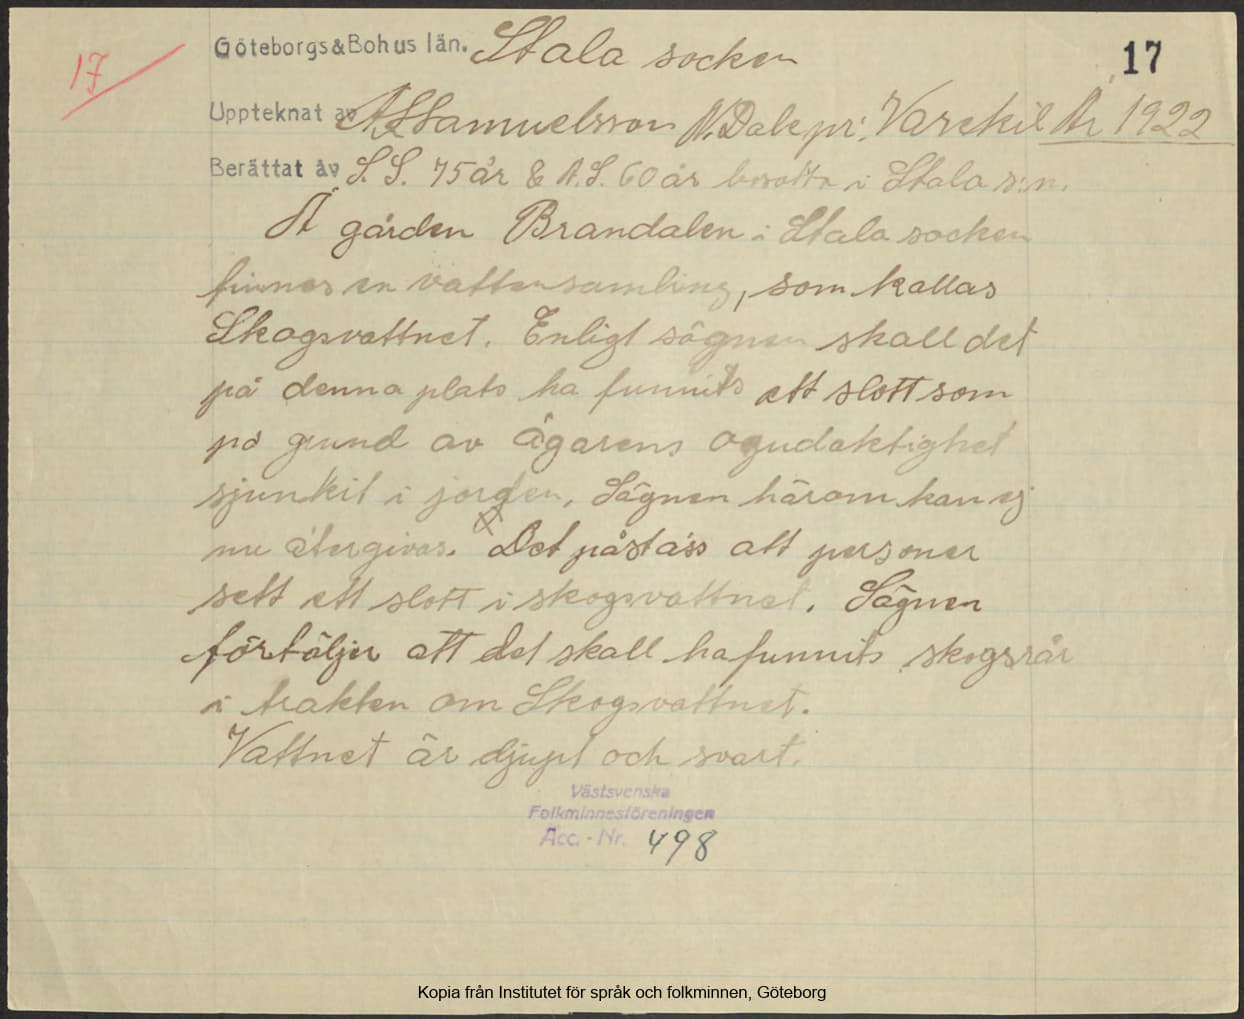 17
Göteborgs&Bohus län. Stala socken
17
Uppteknat av A.S. Samuelsson N. Dale pr. Varekil År 1922
Berättat av S. S. 75 år & A. S. 60 år bosatta i Stala s:n.
Å gården Brandalen i Stala socken
finnes en vattensamling, som kallas
Skogsvattnet. Enligt sägnen skall det
på denna plats ha funnits ett slott som
på grund av ägarens ogudaktighet
sjunkit i jorden. Sägnen härom kan ej
nu återgivas. Det påstås att personer
sett ett slott i skogsvattnet. Sägnen
förtäljer att det skall ha funnits skogsrår
i trakten om Skogsvattnet.
Vattnet är djupt och svart.
Västsvenska
Folkminnesföreningen
Acc. - Nr. 498
Kopia från Institutet för språk och folkminnen, Göteborg